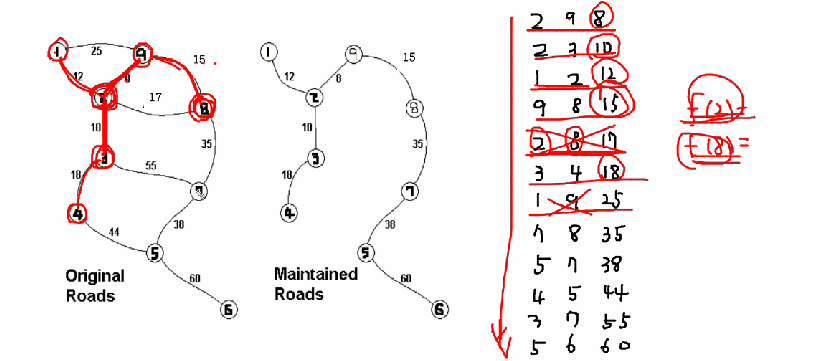 1 25 9 15
12 8
2 17 8
10
3 55 35
18 7
4 44 38
5 60
6
Original
Roads
1 9 15
12 8
2 8
10
3 35
18 7
4 38
5 60
6
Maintained
Roads
2 9 8
2 3 10
1 2 12
9 8 15
2 8 17
3 4 18
1 9 25
7 8 35
5 7 38
4 5 44
3 7 55
5 6 60